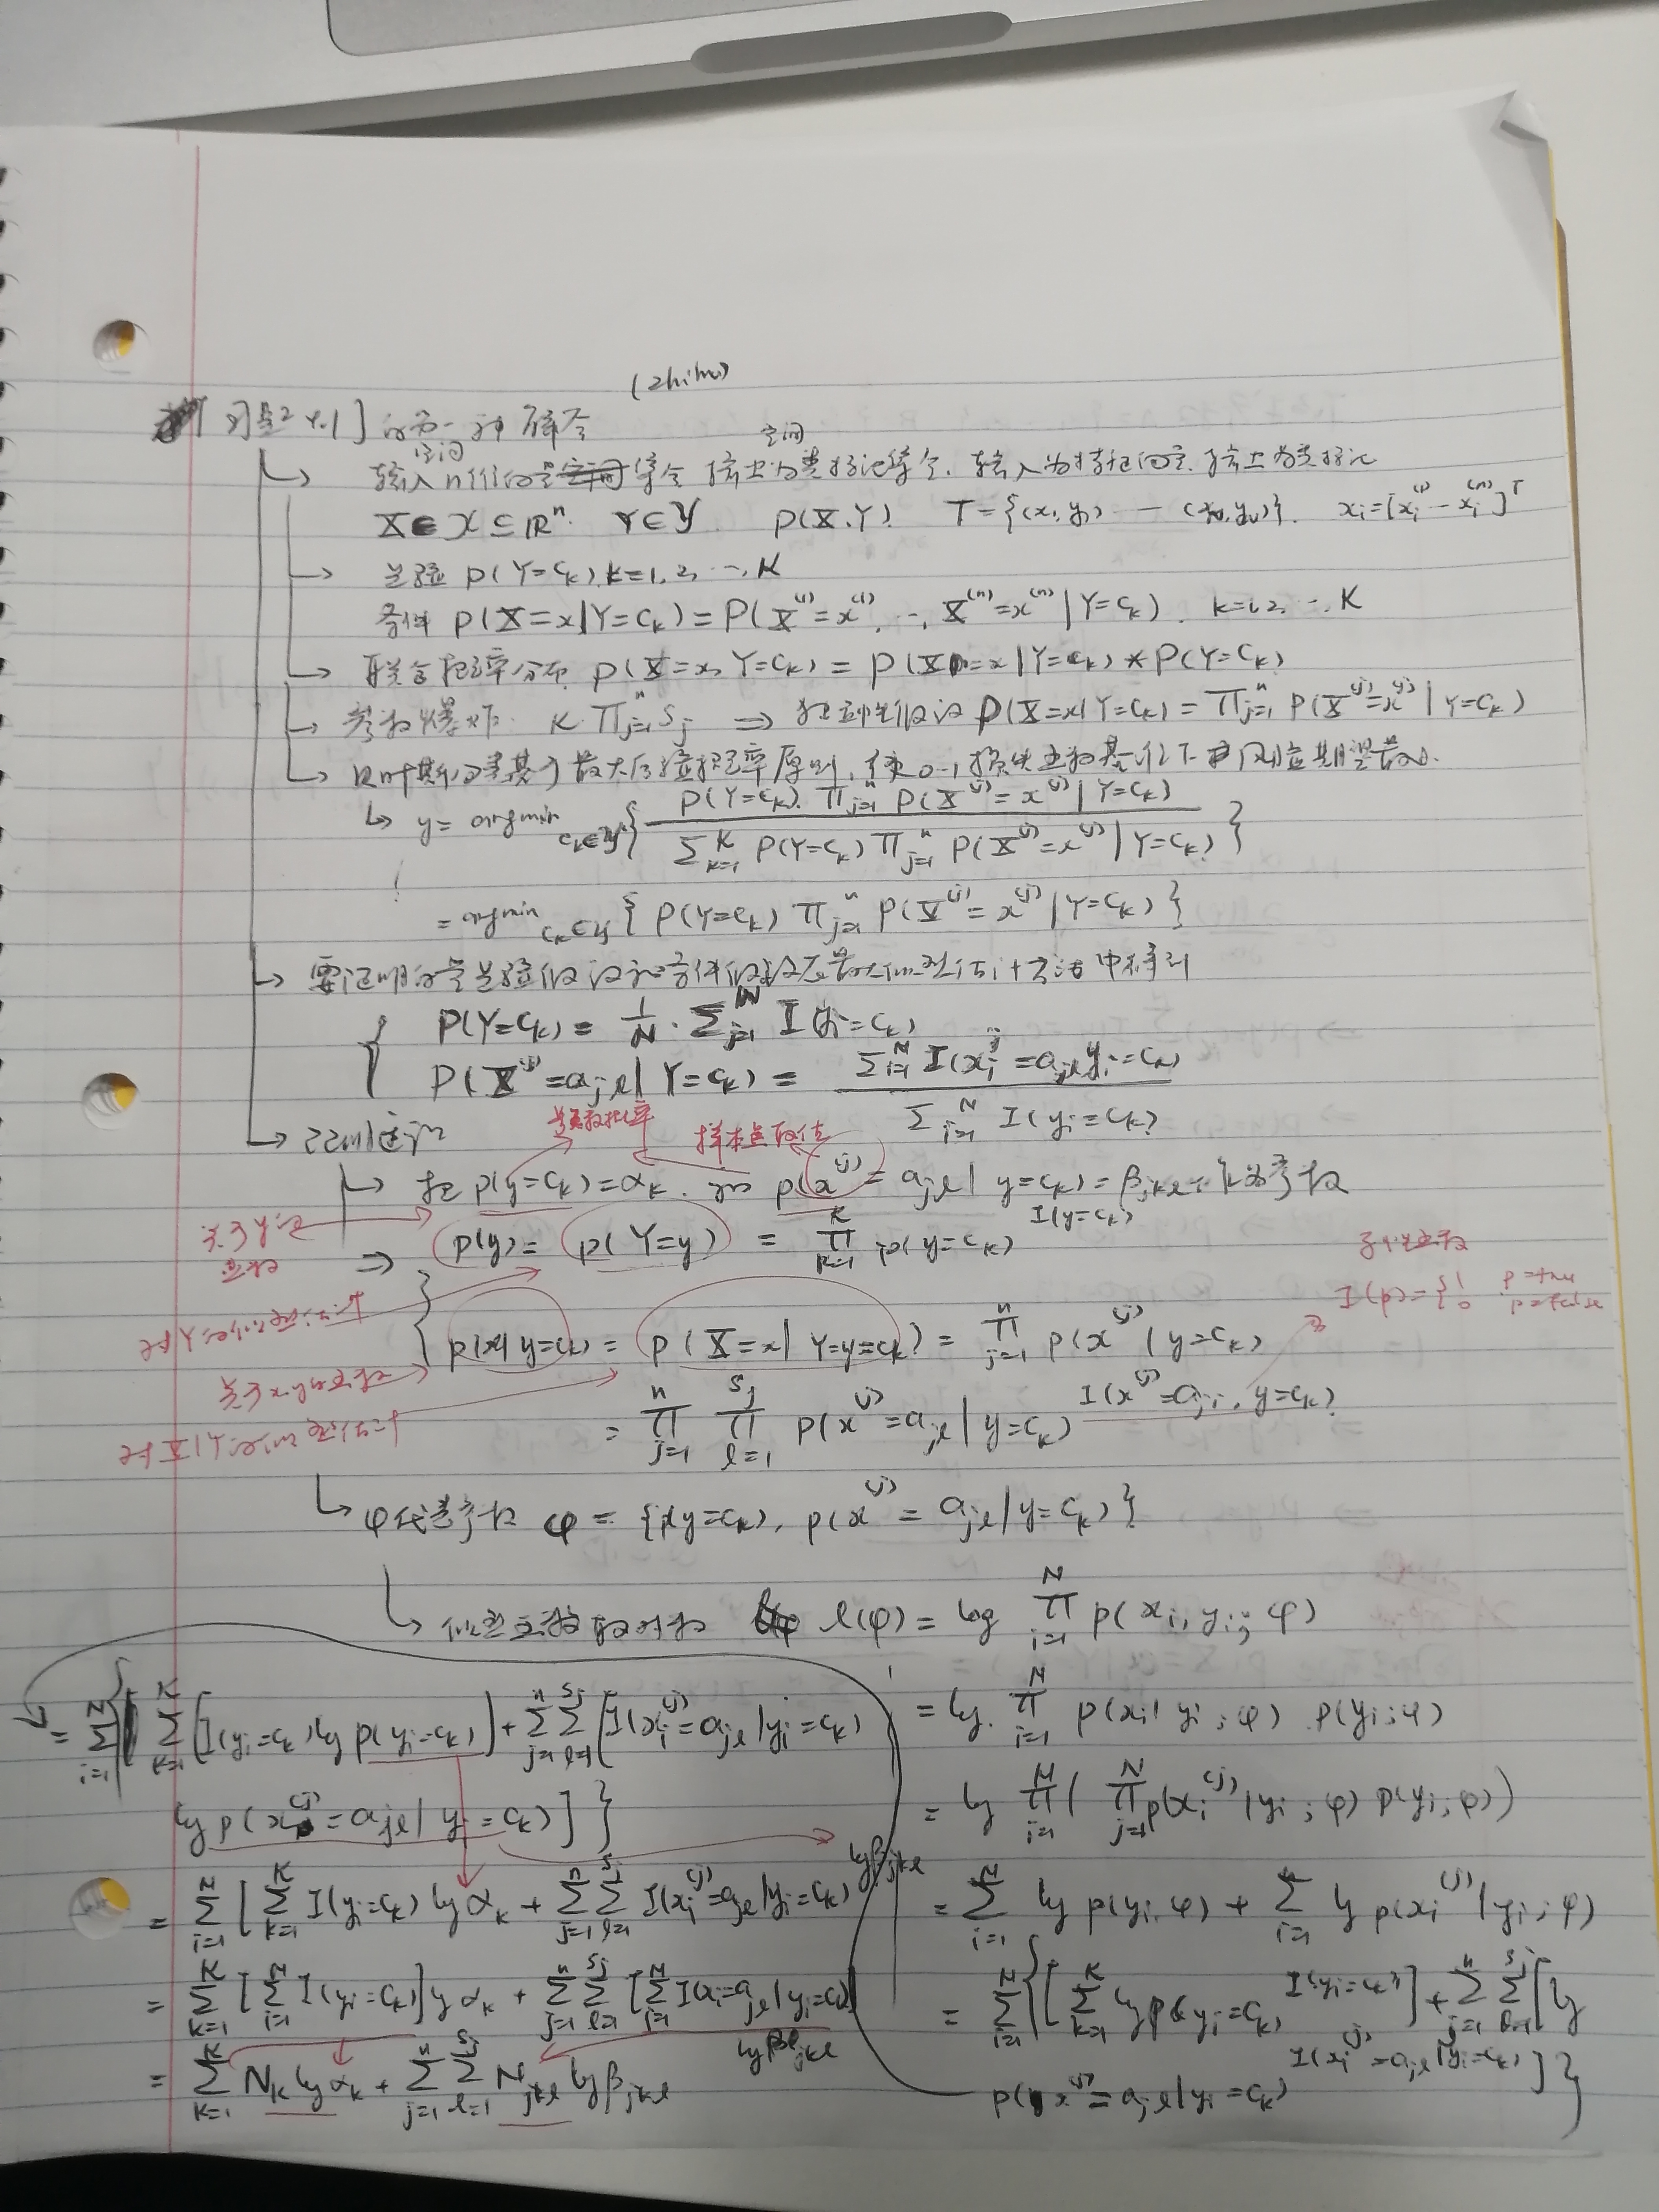 (zhihu)
[习题 4.1] 的另一种解答
空间 空间
输入n维的 集合 输出为类标记集合. 输入为特征向量. 输出为类标记
X∈𝒳⊆ℝⁿ. Y∈𝒴 P(X,Y) T={(x₁,y₁) — (x_N,y_N)}. xᵢ=[xᵢ⁽¹⁾ — xᵢ⁽ⁿ⁾]ᵀ
先验 P(Y=cₖ), k=1,2,…,K
条件 P(X=x|Y=cₖ)=P(X⁽¹⁾=x⁽¹⁾, …, X⁽ⁿ⁾=x⁽ⁿ⁾|Y=cₖ). k=1,2,…,K
联合概率分布 P(X=x, Y=cₖ) = P(X=x|Y=cₖ) * P(Y=cₖ)
参数爆炸. K∏ⱼ₌₁ⁿ Sⱼ ⇒ 独立性假设 P(X=x|Y=cₖ) = ∏ⱼ₌₁ⁿ P(X⁽ʲ⁾=x⁽ʲ⁾|Y=cₖ)
贝叶斯分类基于最大后验概率原则, 使0-1损失函数基准下 风险期望最小.
y = argmin_{cₖ∈𝒴} { P(Y=cₖ). ∏ⱼ₌₁ⁿ P(X⁽ʲ⁾=x⁽ʲ⁾|Y=cₖ) / Σₖ₌₁ᴷ P(Y=cₖ) ∏ⱼ₌₁ⁿ P(X⁽ʲ⁾=x⁽ʲ⁾|Y=cₖ) }
= argmin_{cₖ∈𝒴} { P(Y=cₖ) ∏ⱼ₌₁ⁿ P(X⁽ʲ⁾=x⁽ʲ⁾|Y=cₖ) }
要证明的是先验假设和条件假设在最大似然估计方法中得到
{ P(Y=cₖ) = 1/N · Σⱼ₌₁ᴺ I(yᵢ=cₖ)
P(X⁽ʲ⁾=aⱼₗ|Y=cₖ) = Σᵢ₌₁ᴺ I(xᵢʲ=aⱼₗ, yᵢ=cₖ) / Σᵢ₌₁ᴺ I(yᵢ=cₖ)
样本点取值
把 p(y=cₖ)=αₖ. 和 p(x⁽ʲ⁾=aⱼₗ|y=cₖ)=βⱼₖₗ 作为参数
关于y的函数
⇒ p(y) = p(Y=y) = ∏ₖ₌₁ᴷ p(y=cₖ)^I(y=cₖ)
I(p)={1 p=true
0 p=false
p(x|y=cₖ) = p(X=x|Y=y=cₖ) = ∏ⱼ₌₁ⁿ p(x⁽ʲ⁾|y=cₖ)
关于x,y的函数
= ∏ⱼ₌₁ⁿ ∏ₗ₌₁^Sⱼ p(x⁽ʲ⁾=aⱼₗ|y=cₖ)^I(x⁽ʲ⁾=aⱼᵢ, y=cₖ)
φ代替参数 φ = {p(y=cₖ), p(x⁽ʲ⁾=aⱼₗ|y=cₖ)}
似然函数取对数 l(φ) = log ∏ᵢ₌₁ᴺ p(xᵢ, yᵢ; φ)
= log. ∏ᵢ₌₁ᴺ p(xᵢ|yᵢ; φ) p(yᵢ; φ)
= log ∏ᵢ₌₁ᴺ ( ∏ⱼ₌₁ᴺ p(xᵢ⁽ʲ⁾|yᵢ; φ) p(yᵢ; φ))
= Σᵢ₌₁ᴺ log p(yᵢ, φ) + Σᵢ₌₁ⁿ log p(xᵢ⁽ʲ⁾|yᵢ; φ)
= Σᵢ₌₁ᴺ {[Σₖ₌₁ᴷ log p(yᵢ=cₖ)^I(yᵢ=cₖ)] + Σⱼ₌₁ⁿ Σₗ₌₁^Sⱼ [log
p(x⁽ʲ⁾=aⱼₗ|yᵢ=cₖ)^I(xᵢ⁽ʲ⁾=aⱼₗ|yᵢ=cₖ)]}
= Σᵢ₌₁ᴺ { Σₖ₌₁ᴷ [I(yᵢ=cₖ) log p(yᵢ=cₖ)] + Σⱼ₌₁ⁿ Σₗ₌₁^Sⱼ [I(xᵢ⁽ʲ⁾=aⱼₗ|yᵢ=cₖ)
log p(x⁽ʲ⁾=aⱼₗ|yᵢ=cₖ)]}
= Σᵢ₌₁ᴺ [Σₖ₌₁ᴷ I(yᵢ=cₖ) log αₖ + Σⱼ₌₁ⁿ Σₗ₌₁^Sⱼ I(xᵢ⁽ʲ⁾=aⱼₗ|yᵢ=cₖ) log βⱼₖₗ
= Σₖ₌₁ᴷ [Σᵢ₌₁ᴺ I(yᵢ=cₖ)] log αₖ + Σⱼ₌₁ⁿ Σₗ₌₁^Sⱼ [Σᵢ₌₁ᴺ I(xᵢ=aⱼₗ|yᵢ=cₖ)] log βⱼₖₗ
= Σₖ₌₁ᴷ Nₖ log αₖ + Σⱼ₌₁ⁿ Σₗ₌₁^Sⱼ Nⱼₖₗ log βⱼₖₗ